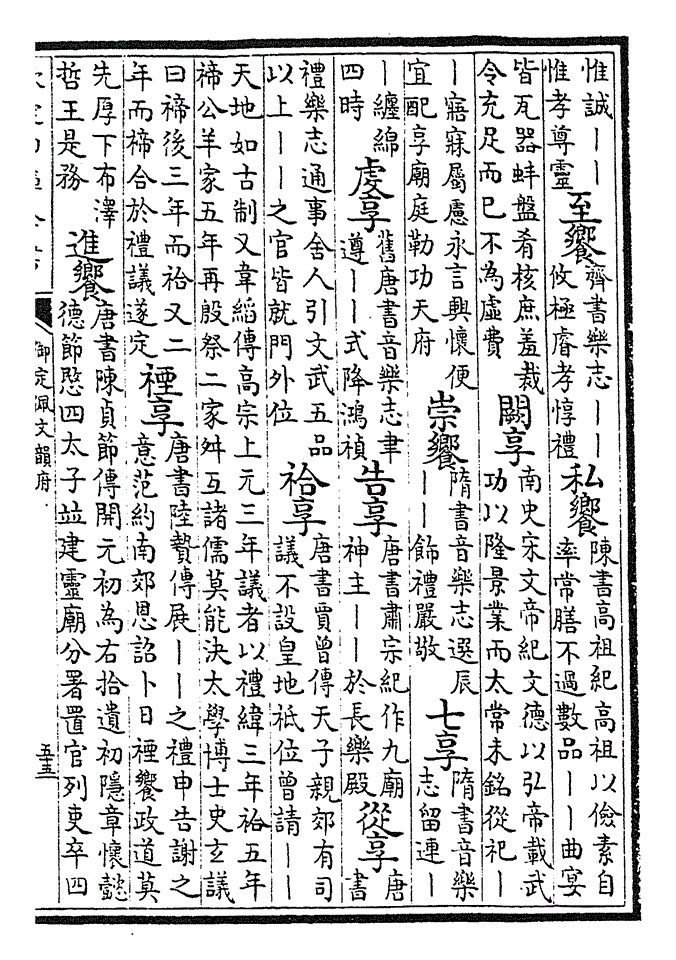 惟誠丨丨惟孝尊靈 至饗 齊書樂志丨丨攸極睿孝惇禮 私饗 陳書高祖紀高祖以儉素自率常膳不過數品丨丨曲宴
皆瓦器蚌盤肴核庶羞裁令充足而已不為虛費 闕享 南史宋文帝紀文德以弘帝載武功以隆景業而太常未銘從祀丨
丨寤寐屬慮永言興懷便宜配享廟庭勒功天府 崇饗 隋書音樂志選辰丨丨飾禮嚴敬 七享 隋書音樂志留連丨
丨纏綿四時 虔享 舊唐書音樂志聿遵丨丨式降鴻禎 告享 唐書肅宗紀作九廟神主丨丨於長樂殿 從享 唐書
禮樂志通事舍人引文武五品以上丨丨之官皆就門外位 祫享 唐書賈曾傳天子親郊有司議不設皇地祗位曾請丨丨
天地如古制又韋縚傳高宗上元三年議者以禮緯三年祫五年禘公羊家五年再殷祭二家舛互諸儒莫能決太學博士史玄議
曰禘後三年而祫又二年而禘合於禮議遂定 禋享 唐書陸贄傳展丨丨之禮申告謝之意范約南郊恩詔卜日禋饗政道莫
先厚下布澤哲王是務 進饗 唐書陳貞節傳開元初為右拾遺初隱章懷懿德節愍四太子竝建靈廟分署置官列吏卒四
御定佩文韻府